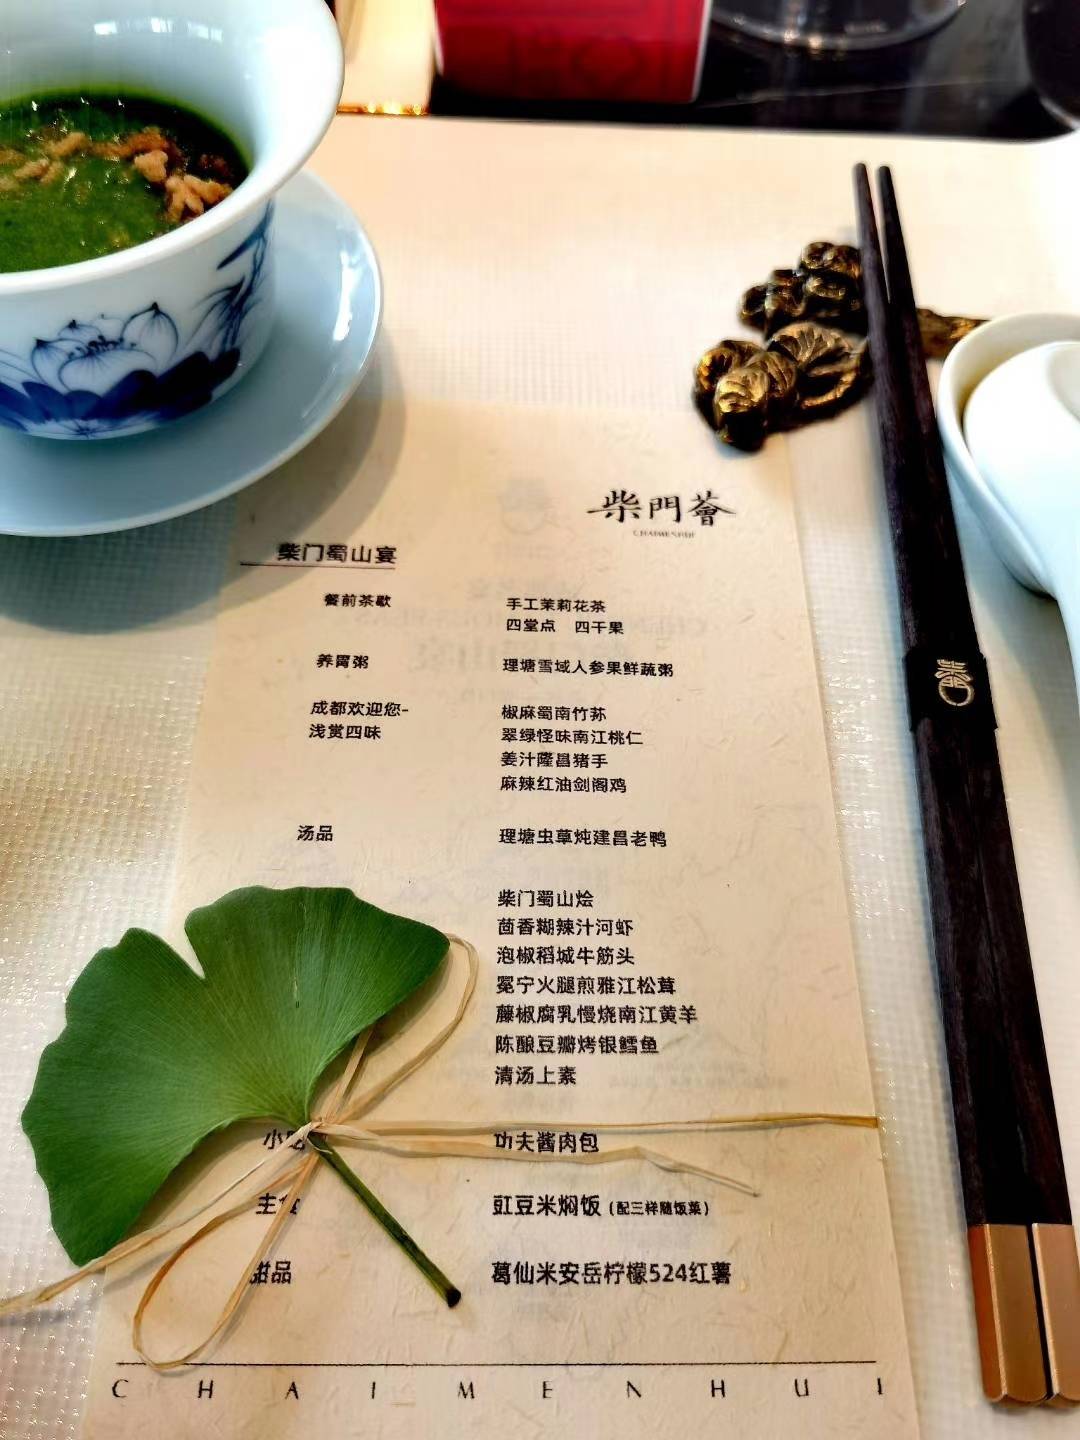 柴門薈
CHAIMENHUI
柴门蜀山宴
餐前茶歇 手工茉莉花茶
四堂点 四干果
养胃粥 理塘雪域人参果鲜蔬粥
成都欢迎您- 椒麻蜀南竹荪
浅赏四味 翠绿怪味南江桃仁
姜汁隆昌猪手
麻辣红油剑阁鸡
汤品 理塘虫草炖建昌老鸭
柴门蜀山烩
茴香糊辣汁河虾
泡椒稻城牛筋头
冕宁火腿煎雅江松茸
藤椒腐乳慢烧南江黄羊
陈酿豆瓣烤银鳕鱼
清汤上素
小吃 功夫酱肉包
主食 豇豆米焖饭（配三样随饭菜）
甜品 葛仙米安岳柠檬524红薯
CHAIMENHUI